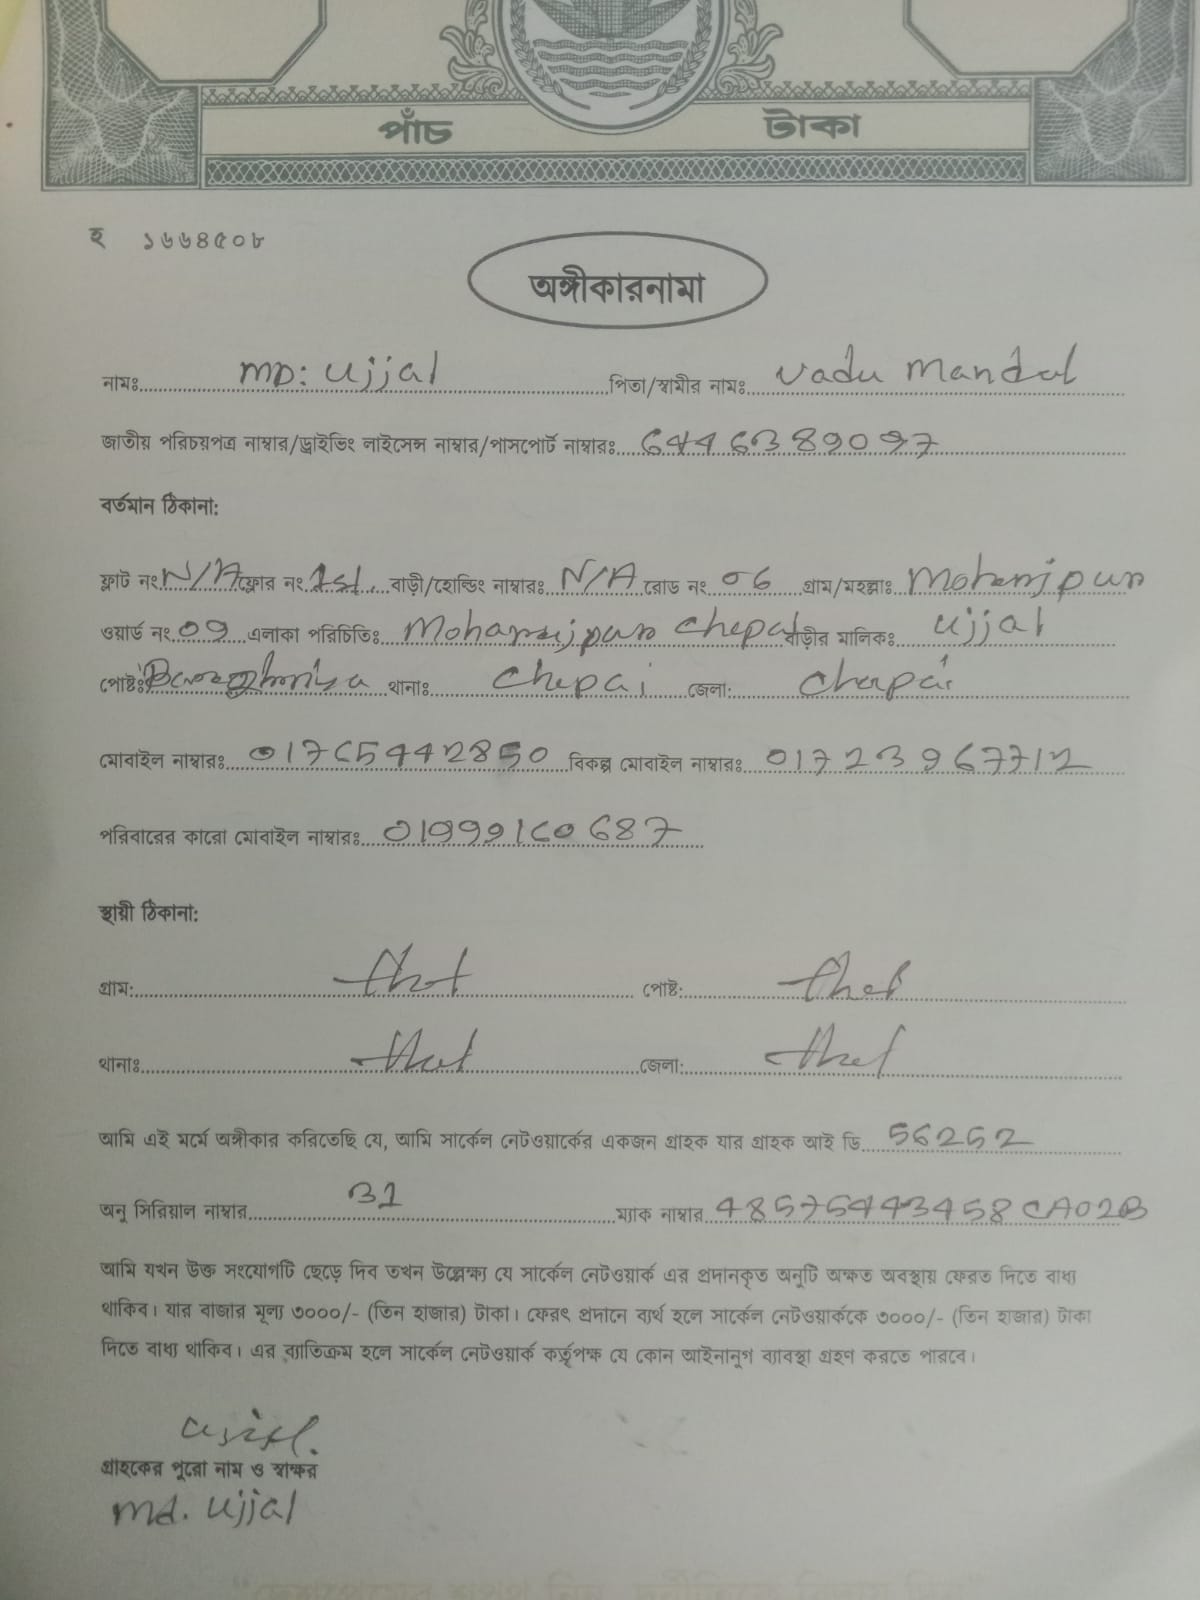 পাঁচ টাকা
হ ১৬৬৪৫০৮
অঙ্গীকারনামা
নামঃ MD: Ujjal পিতা/স্বামীর নামঃ Vadu Mandal
জাতীয় পরিচয়পত্র নাম্বার/ড্রাইভিং লাইসেন্স নাম্বার/পাসপোর্ট নাম্বারঃ 6446389097
বর্তমান ঠিকানা:
ফ্লাট নং N/A ফ্লোর নং 1st বাড়ী/হোল্ডিং নাম্বারঃ N/A রোড নং 06 গ্রাম/মহল্লাঃ
ওয়ার্ড নং 09 এলাকা পরিচিতিঃ বাড়ীর মালিকঃ Ujjal
পোষ্ট: থানাঃ Chepai জেলা: Chapai
মোবাইল নাম্বারঃ 01765442850 বিকল্প মোবাইল নাম্বারঃ 01723967712
পরিবারের কারো মোবাইল নাম্বারঃ 01999160687
স্থায়ী ঠিকানা:
গ্রাম: that পোষ্ট: that
থানাঃ that জেলা: that
আমি এই মর্মে অঙ্গীকার করিতেছি যে, আমি সার্কেল নেটওয়ার্কের একজন গ্রাহক যার গ্রাহক আই ডি 56252
অনু সিরিয়াল নাম্বার 31 ম্যাক নাম্বার 48575443458CA02B
আমি যখন উক্ত সংযোগটি ছেড়ে দিব তখন উল্লেক্ষ্য যে সার্কেল নেটওয়ার্ক এর প্রদানকৃত অনুটি অক্ষত অবস্থায় ফেরত দিতে বাধ্য
থাকিব। যার বাজার মূল্য ৩০০০/- (তিন হাজার) টাকা। ফেরৎ প্রদানে ব্যর্থ হলে সার্কেল নেটওয়ার্ককে ৩০০০/- (তিন হাজার) টাকা
দিতে বাধ্য থাকিব। এর ব্যাতিক্রম হলে সার্কেল নেটওয়ার্ক কর্তৃপক্ষ যে কোন আইনানুগ ব্যাবস্থা গ্রহণ করতে পারবে।
গ্রাহকের পুরো নাম ও স্বাক্ষর
Md. Ujjal